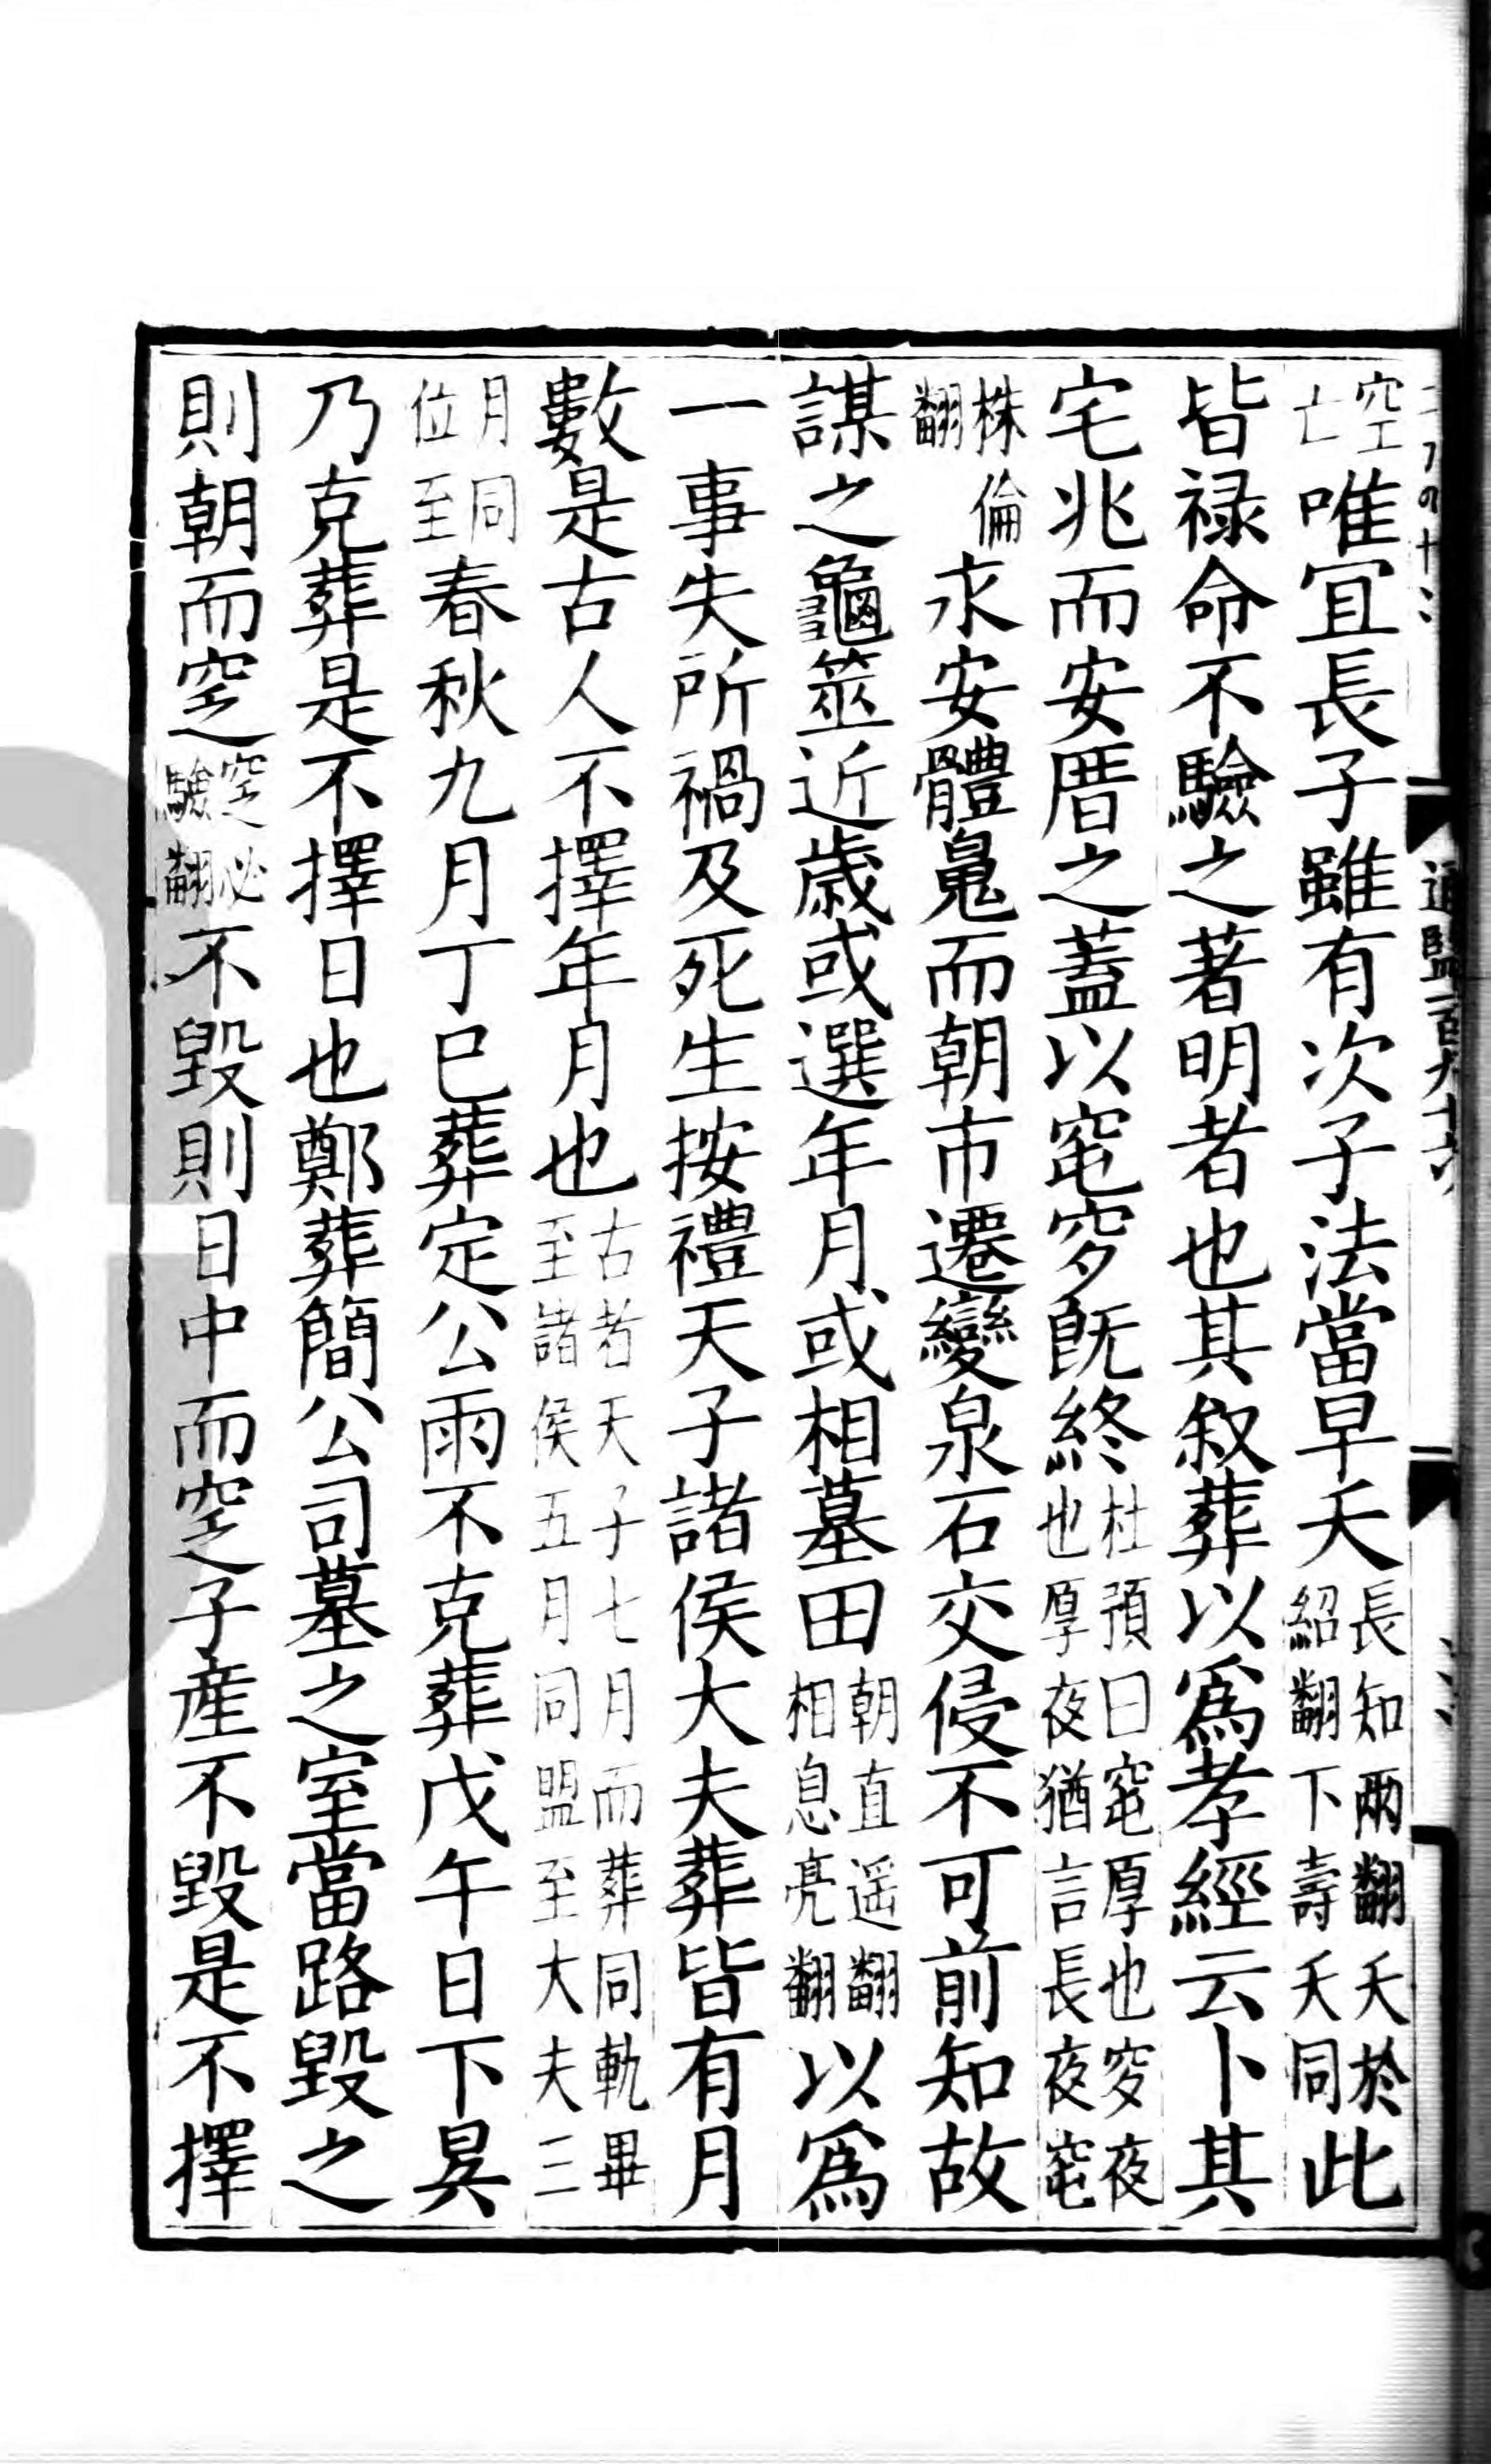 空亡唯宜長子雖有次子法當早夭長知兩翻夭於紹翻下壽夭同此
皆禄命不驗之著明者也其叙葬以爲孝經云卜其
宅兆而安厝之蓋以窀穸既終杜預曰窀厚也穸夜也厚夜猶言長夜窀
株倫翻永安體䰟而朝市遷變泉石交侵不可前知故
謀之龜筮近歲或選年月或相墓田朝直遥翻相息亮翻以爲
一事失所禍及死生按禮天子諸侯大夫葬皆有月
數是古人不擇年月也古者天子七月而葬同軌畢至諸侯五月同盟至大夫三
月同位至春秋九月丁巳葬定公雨不克葬戊午日下昃
乃克葬是不擇日也鄭葬簡公司墓之室當路毀之
則朝而窆之窆必驗翻不毀則日中而窆子產不毀是不擇